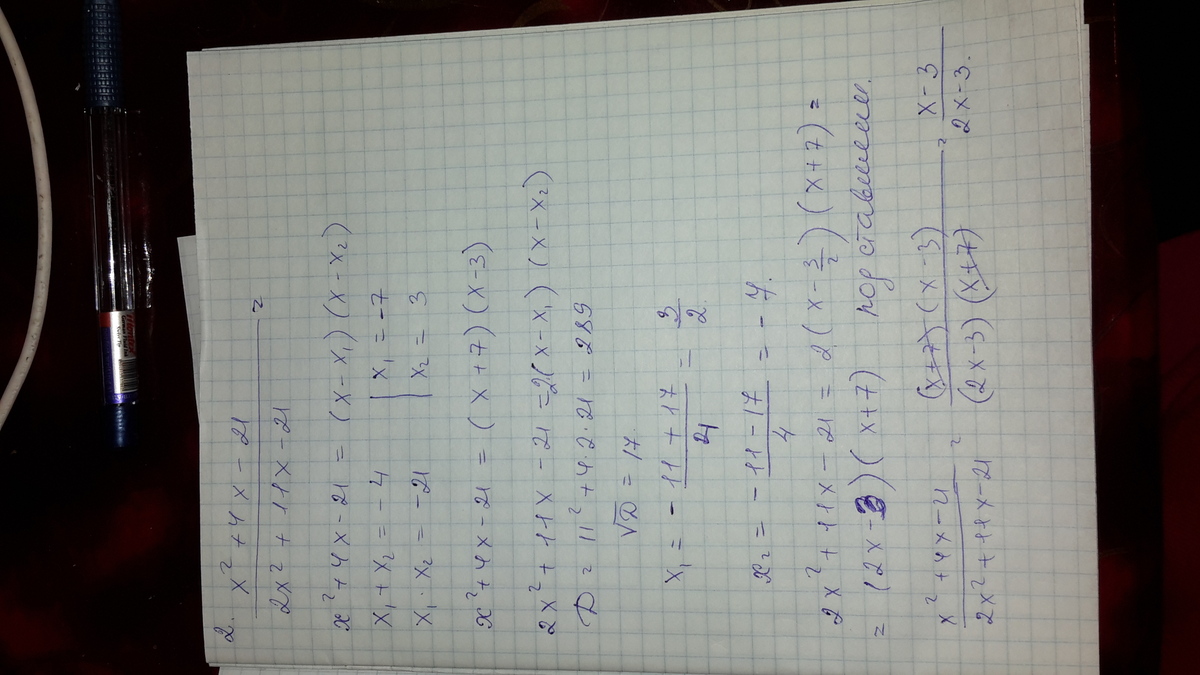 2. (x² + 4x - 21)/(2x² + 11x - 21) =
x² + 4x - 21 = (x - x₁)(x - x₂)
x₁ + x₂ = -4 | x₁ = -7
x₁ · x₂ = -21 | x₂ = 3
x² + 4x - 21 = (x + 7)(x - 3)
2x² + 11x - 21 = 2(x - x₁)(x - x₂)
D = 11² + 4·2·21 = 289
√D = 17.
x₁ = (-11 + 17)/4 = 3/2
x₂ = (-11 - 17)/4 = -7.
2x² + 11x - 21 = 2(x - 3/2)(x + 7) =
= (2x - 3)(x + 7) подставим.
(x² + 4x - 21)/(2x² + 11x - 21) = ((x + 7)(x - 3))/((2x - 3)(x + 7)) = (x - 3)/(2x - 3).